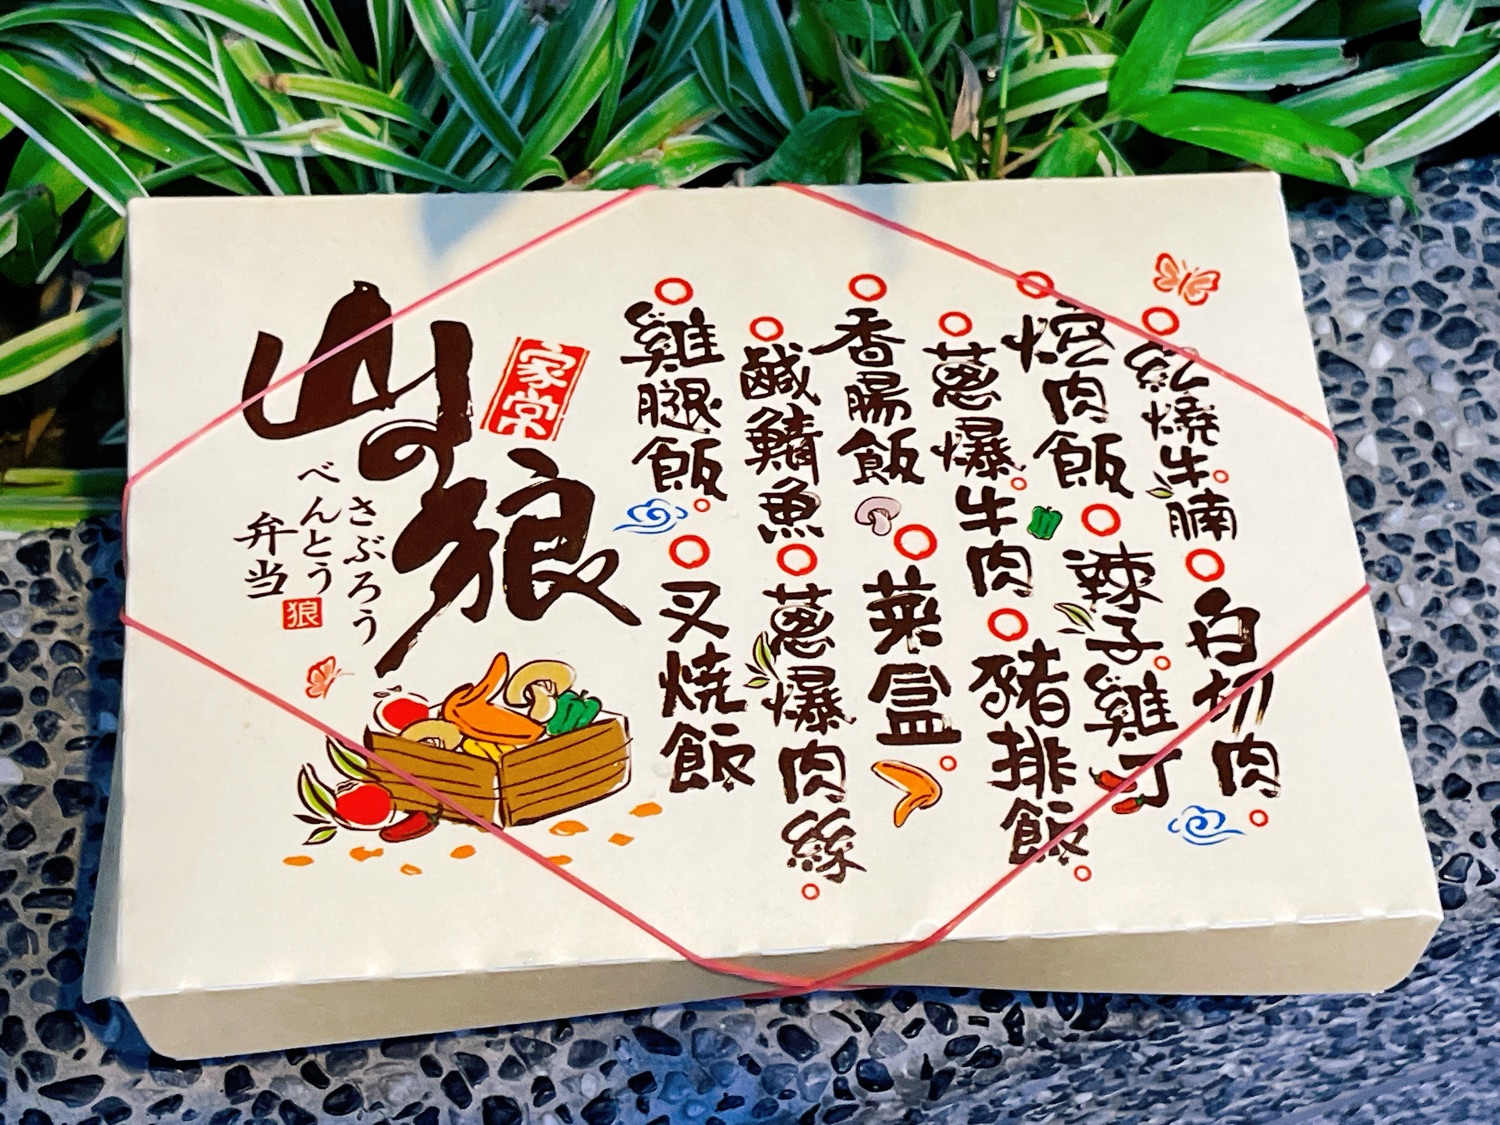 紅燒牛腩
白切肉
焢肉飯
辣子雞丁
蔥爆牛肉
豬排飯
香腸飯
菜盒
鹹鯖魚
蔥爆肉絲
雞腿飯
叉燒飯
家常
山の狼
さぶろう
べんとう
弁当
狼